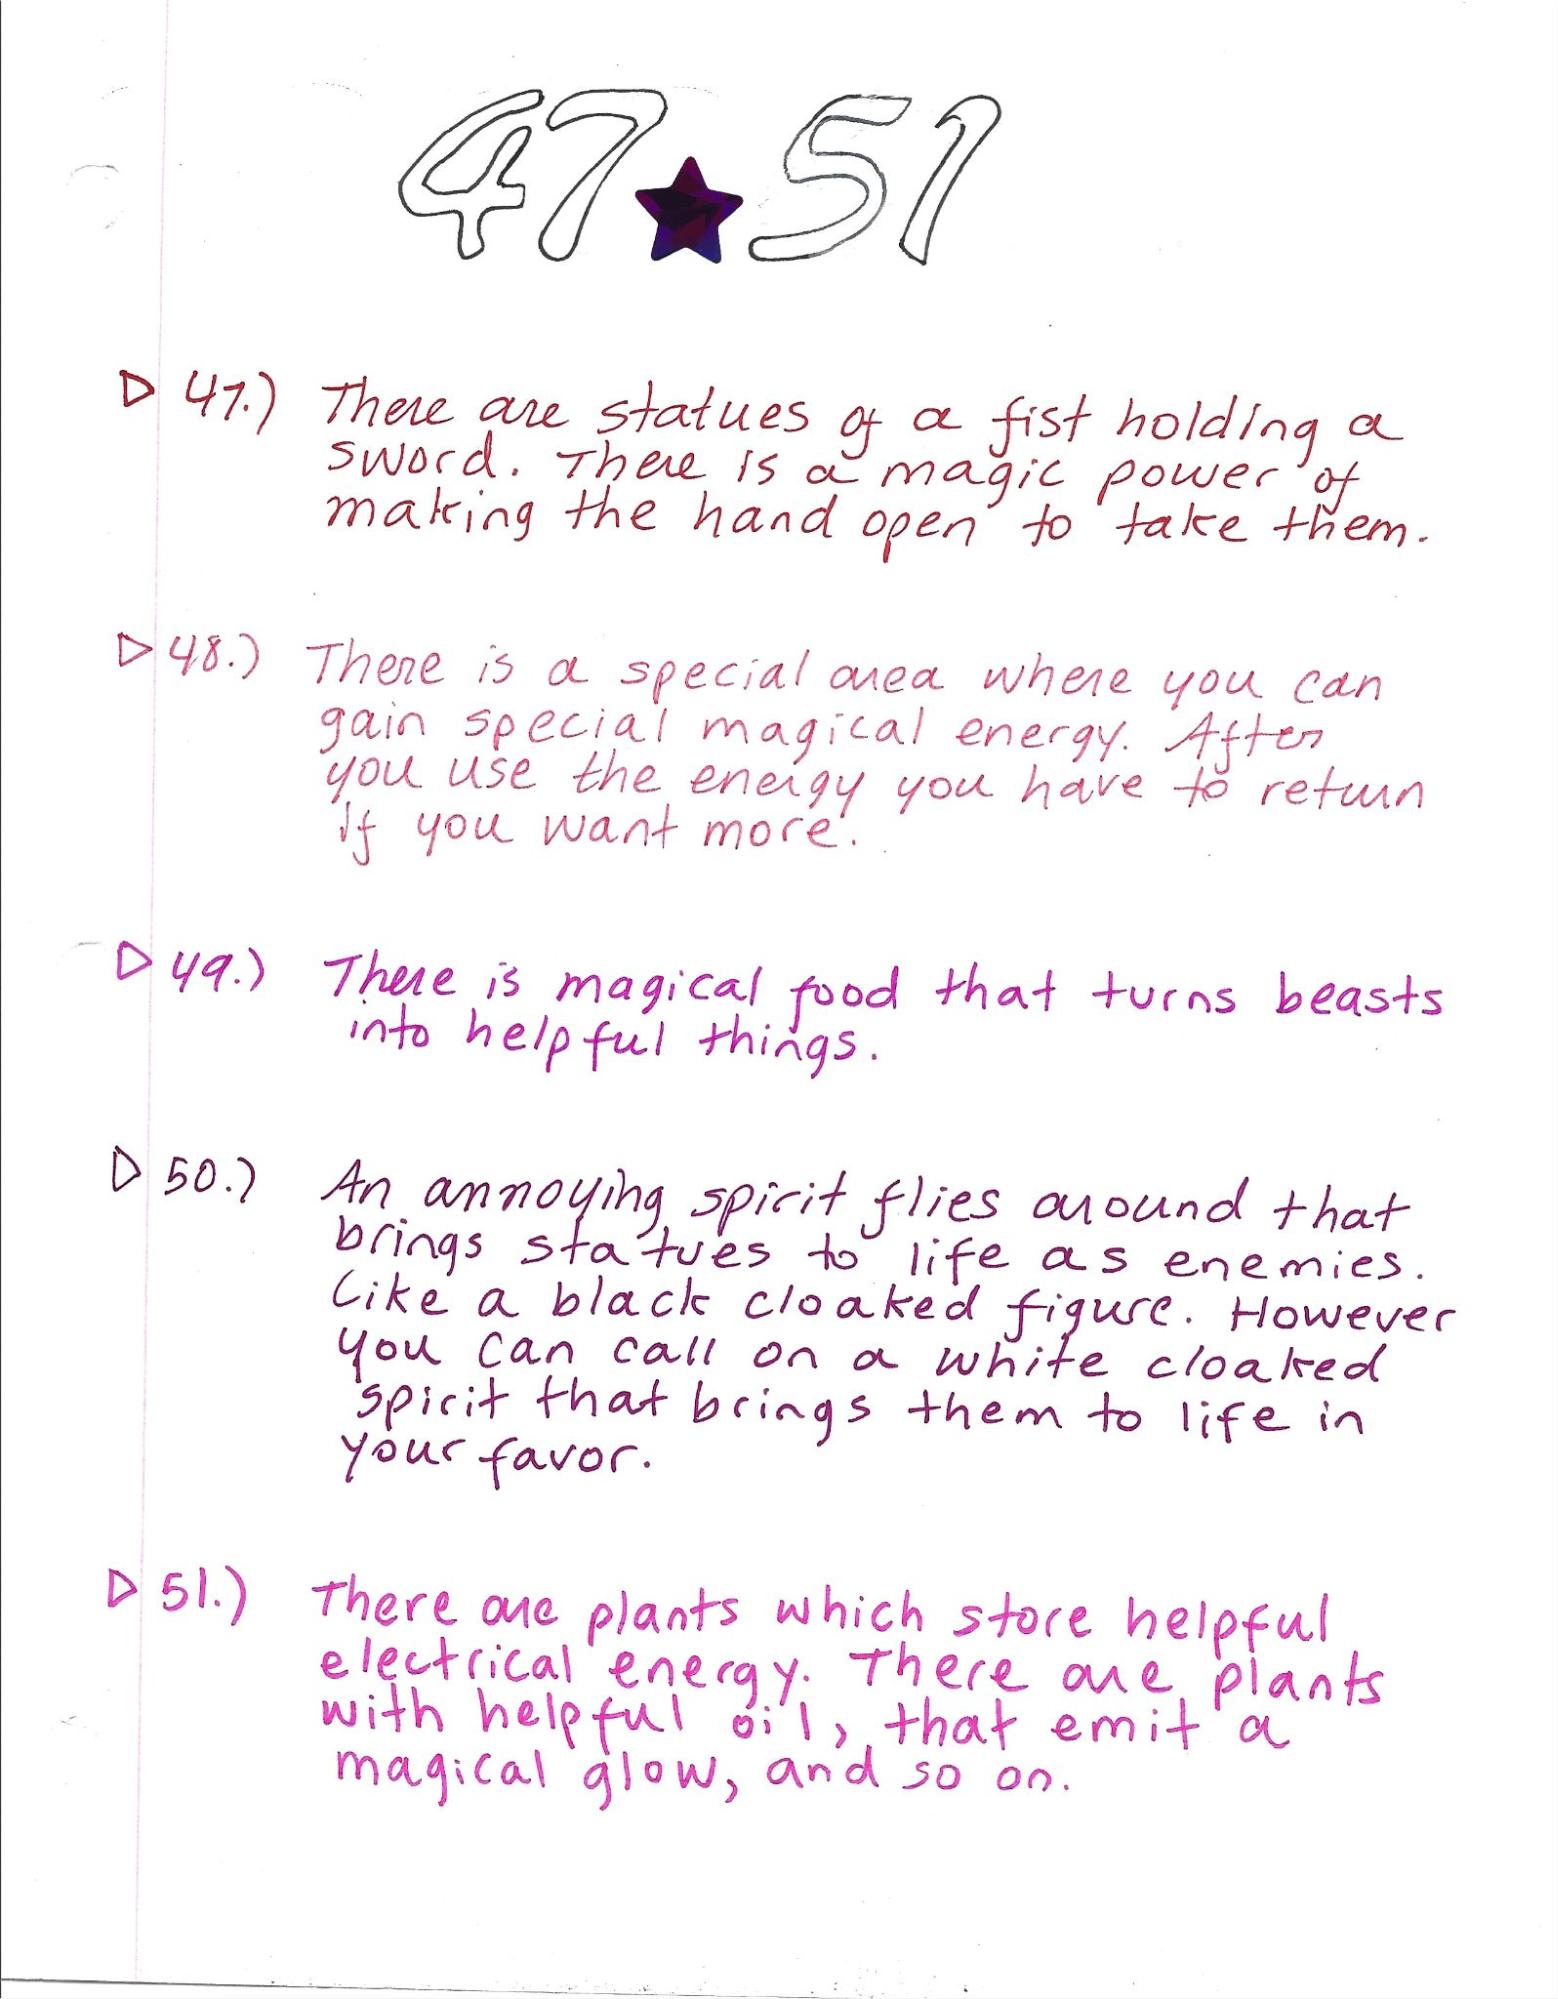 47 51
47.) There are statues of a fist holding a
sword. There is a magic power of
making the hand open to take them.
48.) There is a special area where you can
gain special magical energy. After
you use the energy you have to return
if you want more.
49.) There is magical food that turns beasts
into helpful things.
50.) An annoying spirit flies around that
brings statues to life as enemies.
Like a black cloaked figure. However
you can call on a white cloaked
spirit that brings them to life in
your favor.
51.) There are plants which store helpful
electrical energy. There are plants
with helpful oil, that emit a
magical glow, and so on.